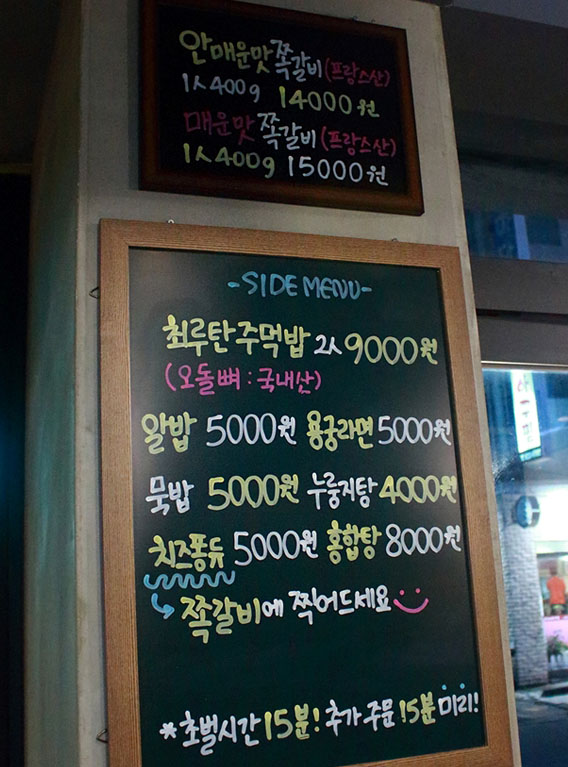 안매운맛쪽갈비(프랑스산)
1人400g 14000원
매운맛쪽갈비(프랑스산)
1人400g 15000원
-SIDE MENU-
최루탄주먹밥 2人 9000원
(오돌뼈 : 국내산)
알밥 5000원 용궁라면 5000원
묵밥 5000원 누룽지탕 4000원
치즈퐁듀 5000원 홍합탕 8000원
쪽갈비에 찍어드세요
*초벌시간 15분! 추가 주문 15분 미리!